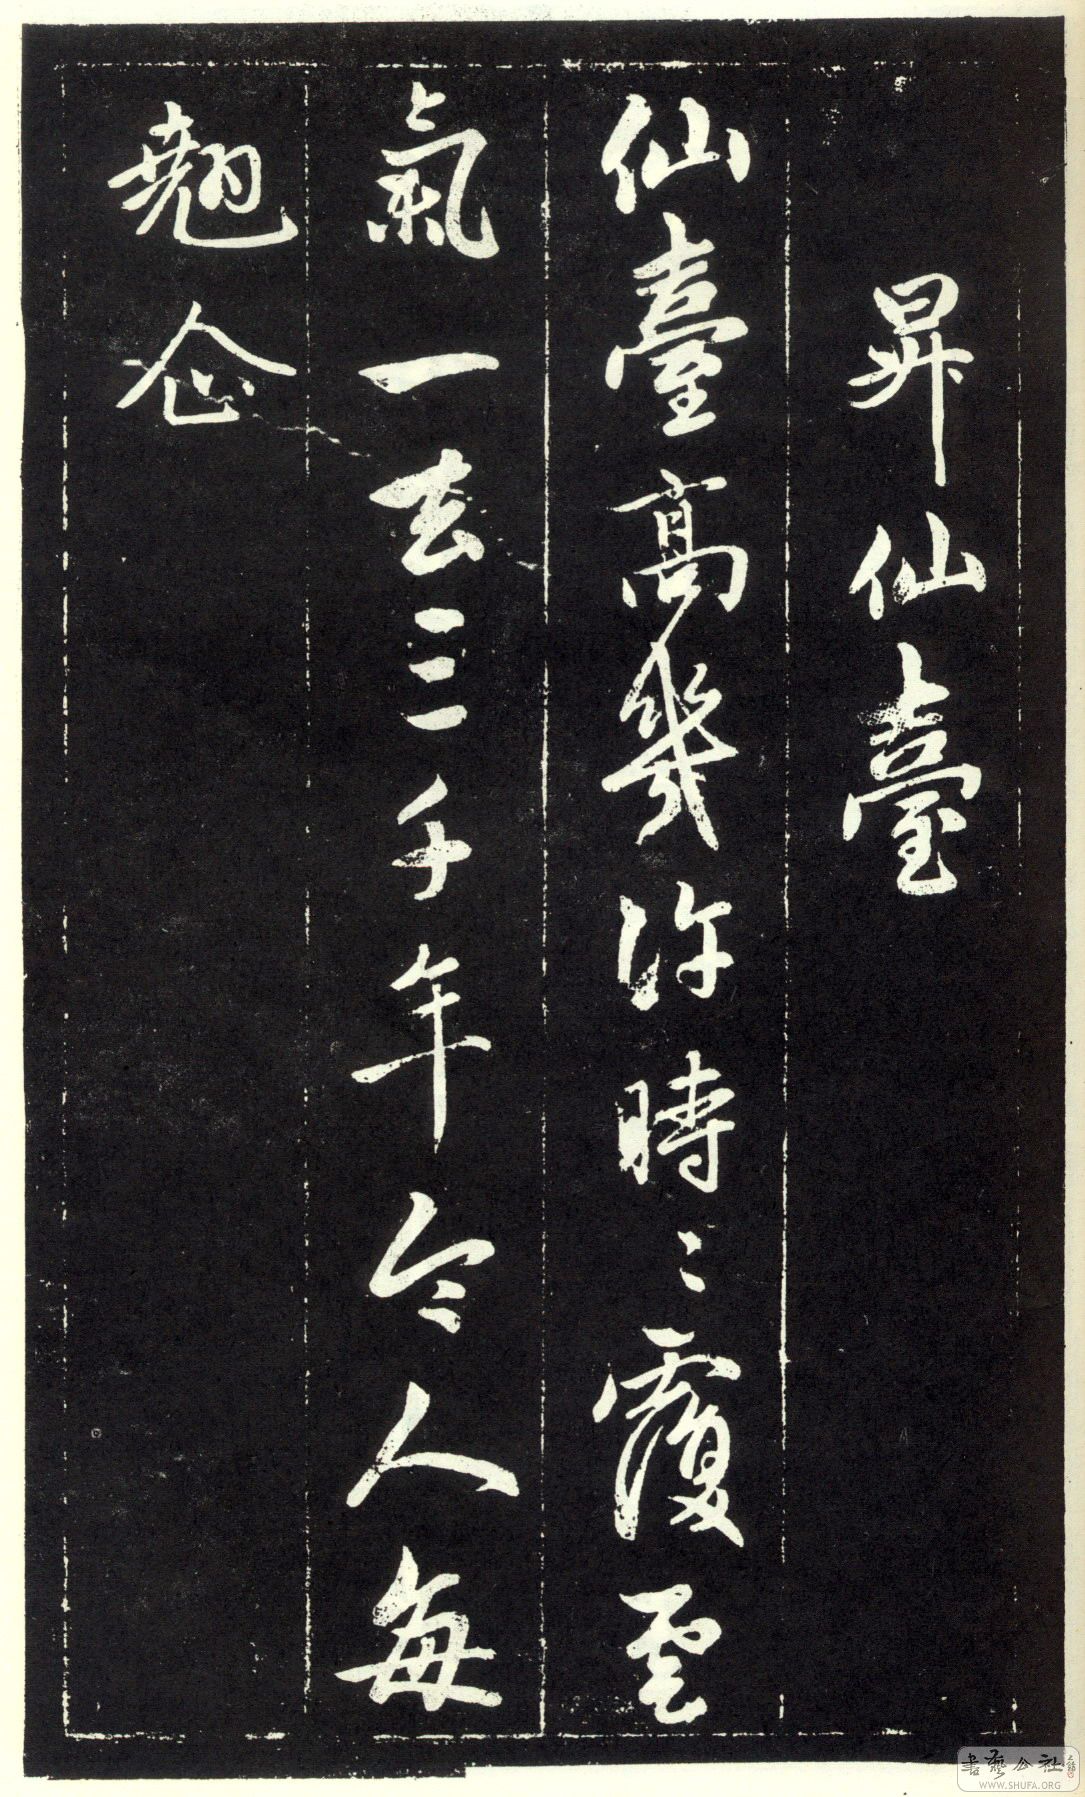 昇仙臺
仙臺高幾許時〻覆雲
氣一去三千年令人每
翹企
書藝公社
WWW.SHUFA.ORG